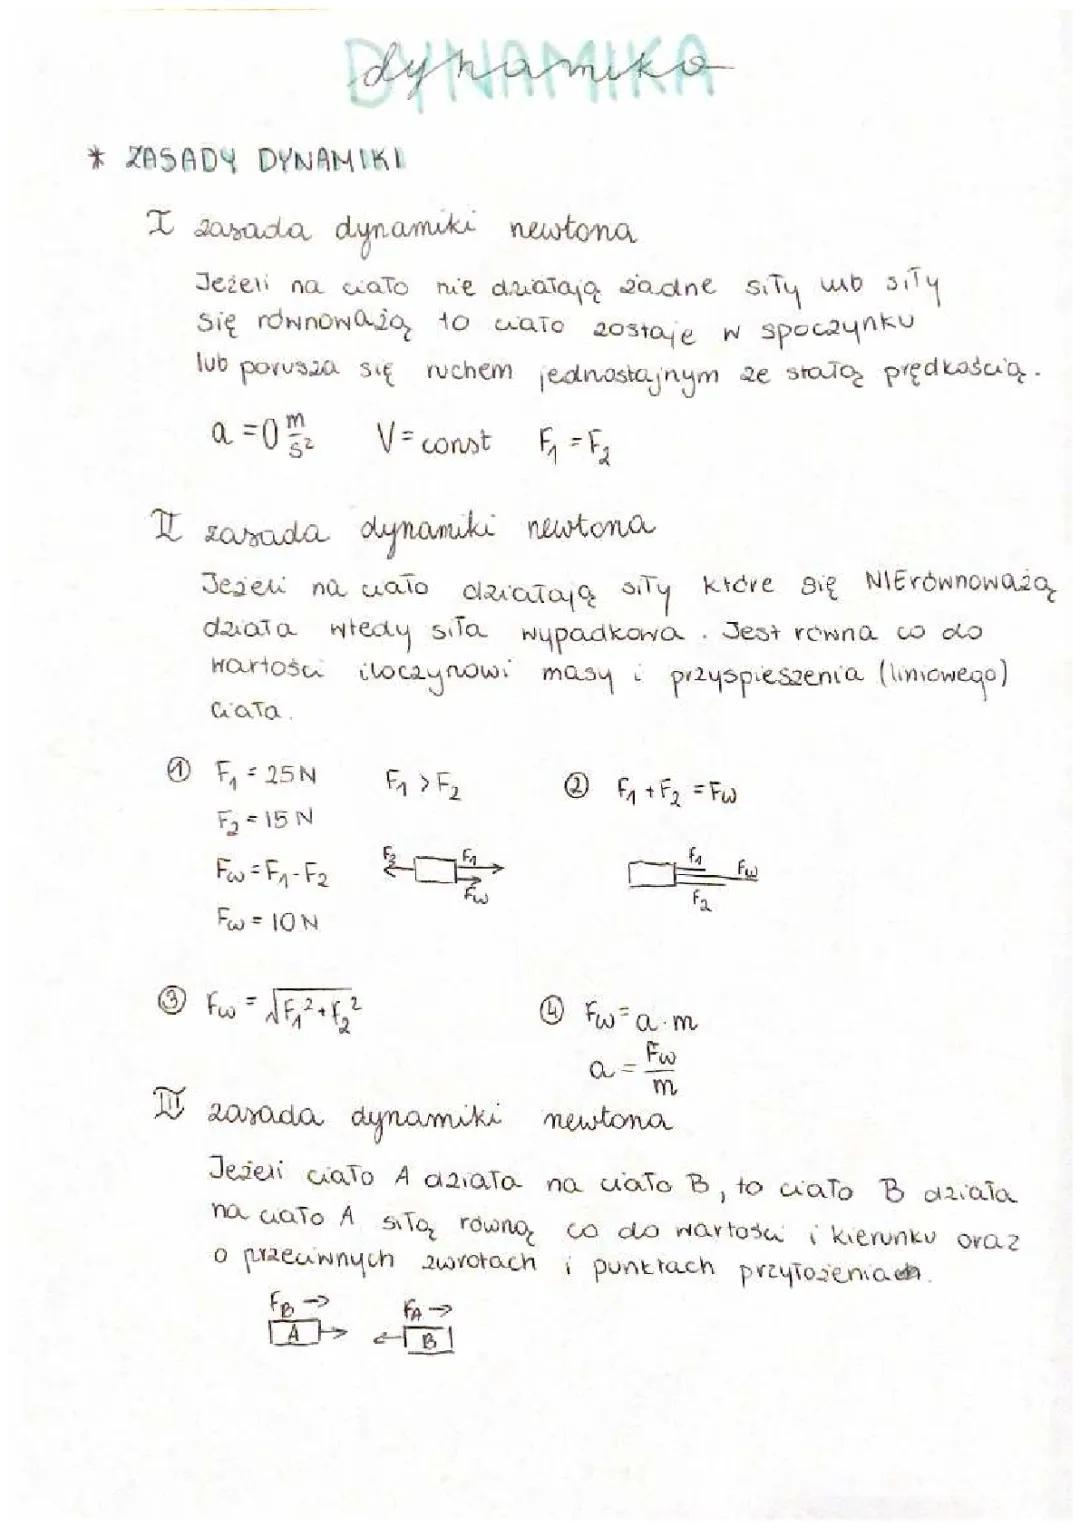 DYNAMIKA
dynamika
* ZASADY DYNAMIKI
I zasada dynamiki newtona
Jeżeli na ciało nie działają żadne siły lub siły
się równoważą to ciało zostaje w spoczynku
lub porusza się ruchem jednostajnym ze stałą prędkością.
a = 0 m/s² V = const F₁ = F₂
II zasada dynamiki newtona
Jeżeli na ciało działają siły które się NIErównoważą
działa wtedy siła wypadkowa. Jest równa co do
wartości iloczynowi masy i przyspieszenia (liniowego)
ciała.
① F₁ = 25N F₁ > F₂ ② F₁ + F₂ = Fw
F₂ = 15 N
Fw = F₁ - F₂ F₂ F₁ Fw F₁ Fw F₂
Fw = 10 N
③ Fw = √F₁² + F₂² ④ Fw = a · m
a = Fw/m
III zasada dynamiki newtona
Jeżeli ciało A działa na ciało B, to ciało B działa
na ciało A siłą równą co do wartości i kierunku oraz
o przeciwnych zwrotach i punktach przyłożeniach.
FB → FA →
A B